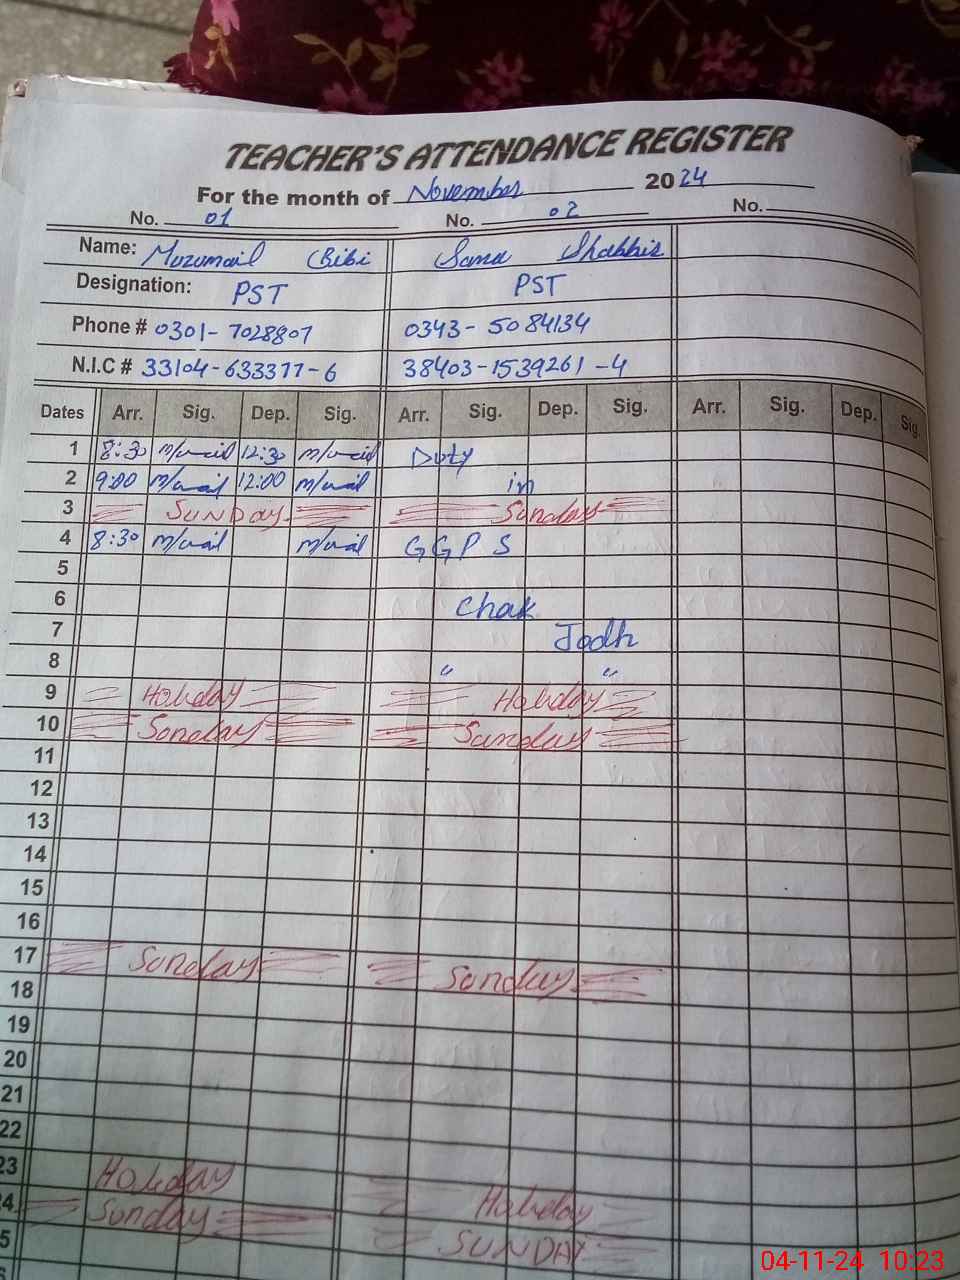 TEACHER'S ATTENDANCE REGISTER
For the month of November 2024
No. 01 No. 02 No.
Name: Muzumail Bibi Sana Shabbir
Designation: PST PST
Phone # 0301-7028807 0343-5084134
N.I.C # 33104-633377-6 38403-1539261-4
Dates Arr. Sig. Dep. Sig. Arr. Sig. Dep. Sig. Arr. Sig. Dep. Sig.
1 8:30 12:30 Duty
2 9:00 12:00 in
3 SUNDAY Sunday
4 8:30 GGPS
5
6 Chak
7 Jodh
8 " "
9 Holiday Holiday
10 Sunday Sunday
11
12
13
14
15
16
17 Sunday Sunday
18
19
20
21
22
23 Holiday Holiday
24 Sunday SUNDAY
5
04-11-24 10:23